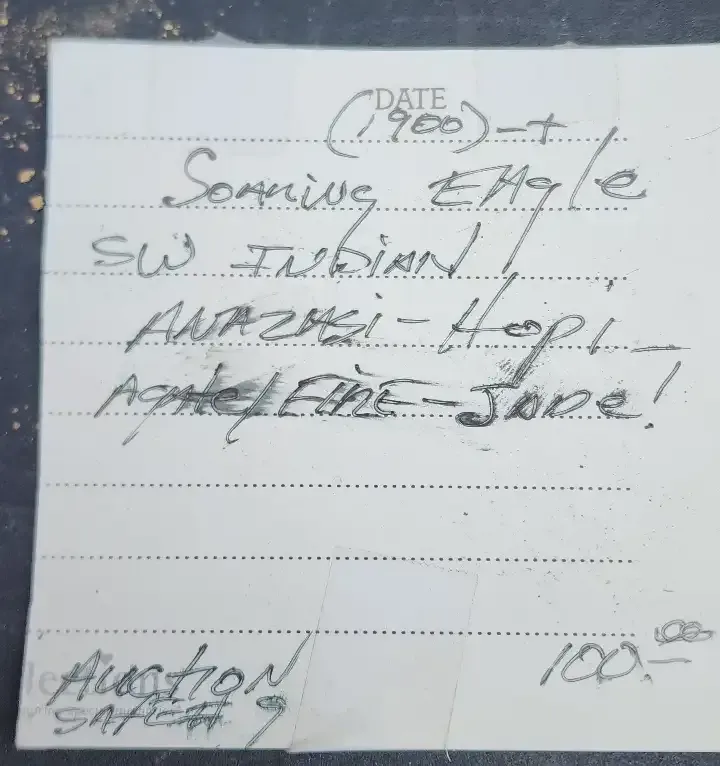 DATE
(1900)-+
Soaring EAgle
SW INDIAN
ANAZASi-Hopi-
Agate/FIRE-JADe!
AUCTION
100.00